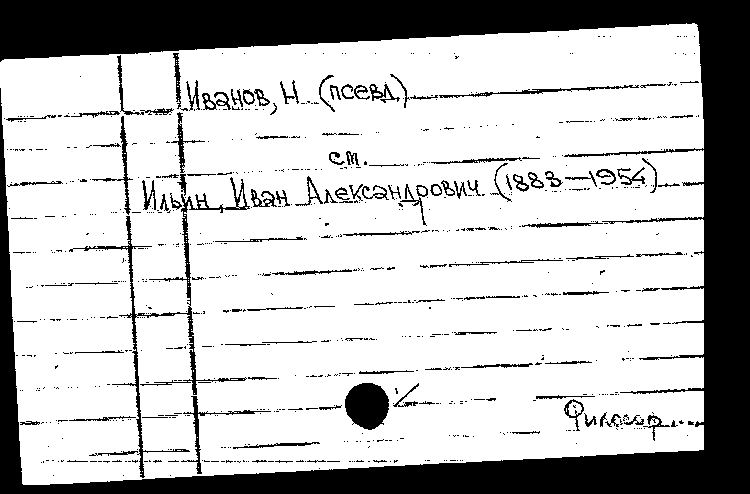 Иванов, Н (псевд)
см.
Ильин, Иван Александрович (1883–1954)
Философ....